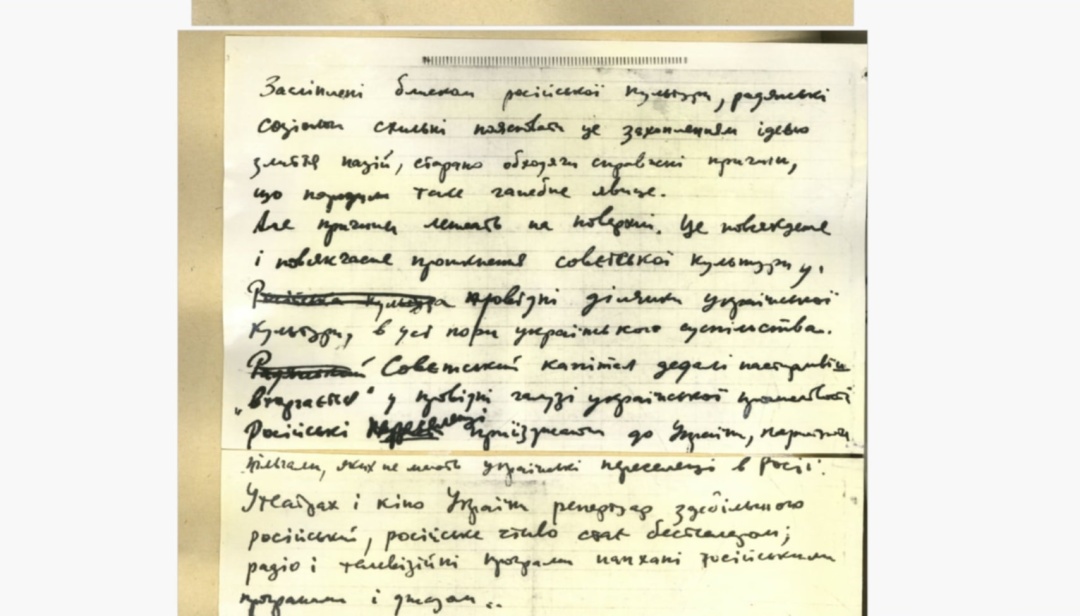 Засліплені блиском російської культури, радянські
соціологи схильні пояснювати це захопленням ідеєю
злиття націй, старанно обходячи справжні причини,
що породили таке ганебне явище.
Але причини лежать на поверхні. Це повсякденне
і повсякчасне проникнення совєтської культури у
Російська культура провідні ділянки української
культури, в усі пори українського суспільства.
Радянський Совєтський капітал дедалі настирливіш
„вторгається" у провідні галузі української промисловості
Російські приїзджають до України,
пільгами, яких не мають українські переселенці в Росії.
У театрах і кіно України репертуар здебільшого
російський, російське чтиво стає бестселером;
радіо і телевізійні програми напхані російськими
програмами і